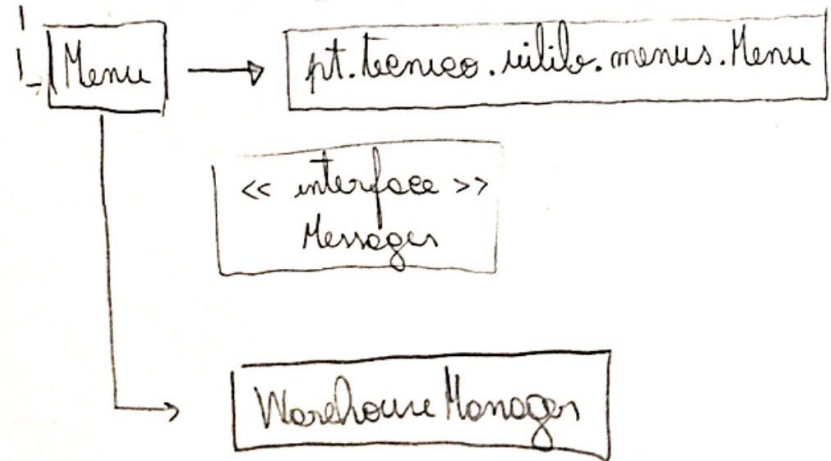 Menu
pt.tecnico.uilib.menus.Menu
<< interface >>
Messages
WarehouseManager